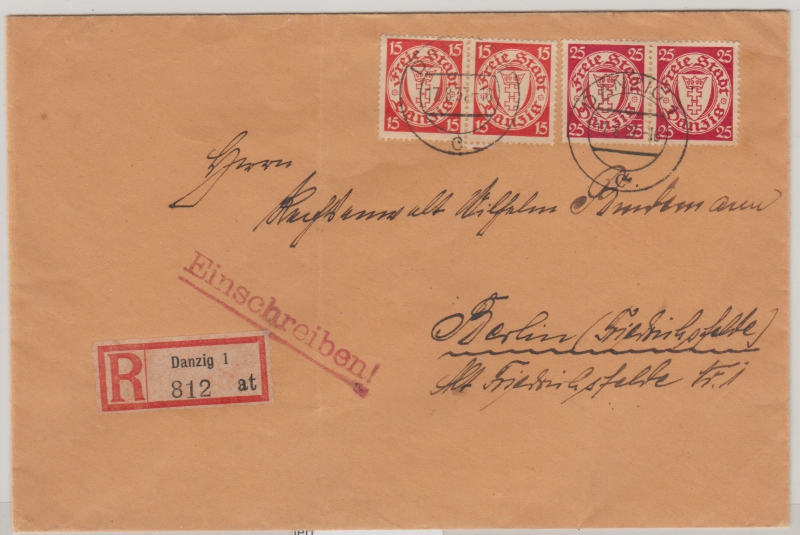 15 15 15 15 25 25 25 25
Freie Stadt Freie Stadt Freie Stadt Freie Stadt
Danzig Danzig Danzig Danzig
15 15 15 15 25 25 25 25
c
Herrn
Rechtsanwalt Wilhelm
Einschreiben!
Berlin (Friedrichsfelde)
Alt Friedrichsfelde Nr. 1
R Danzig 1
812 at